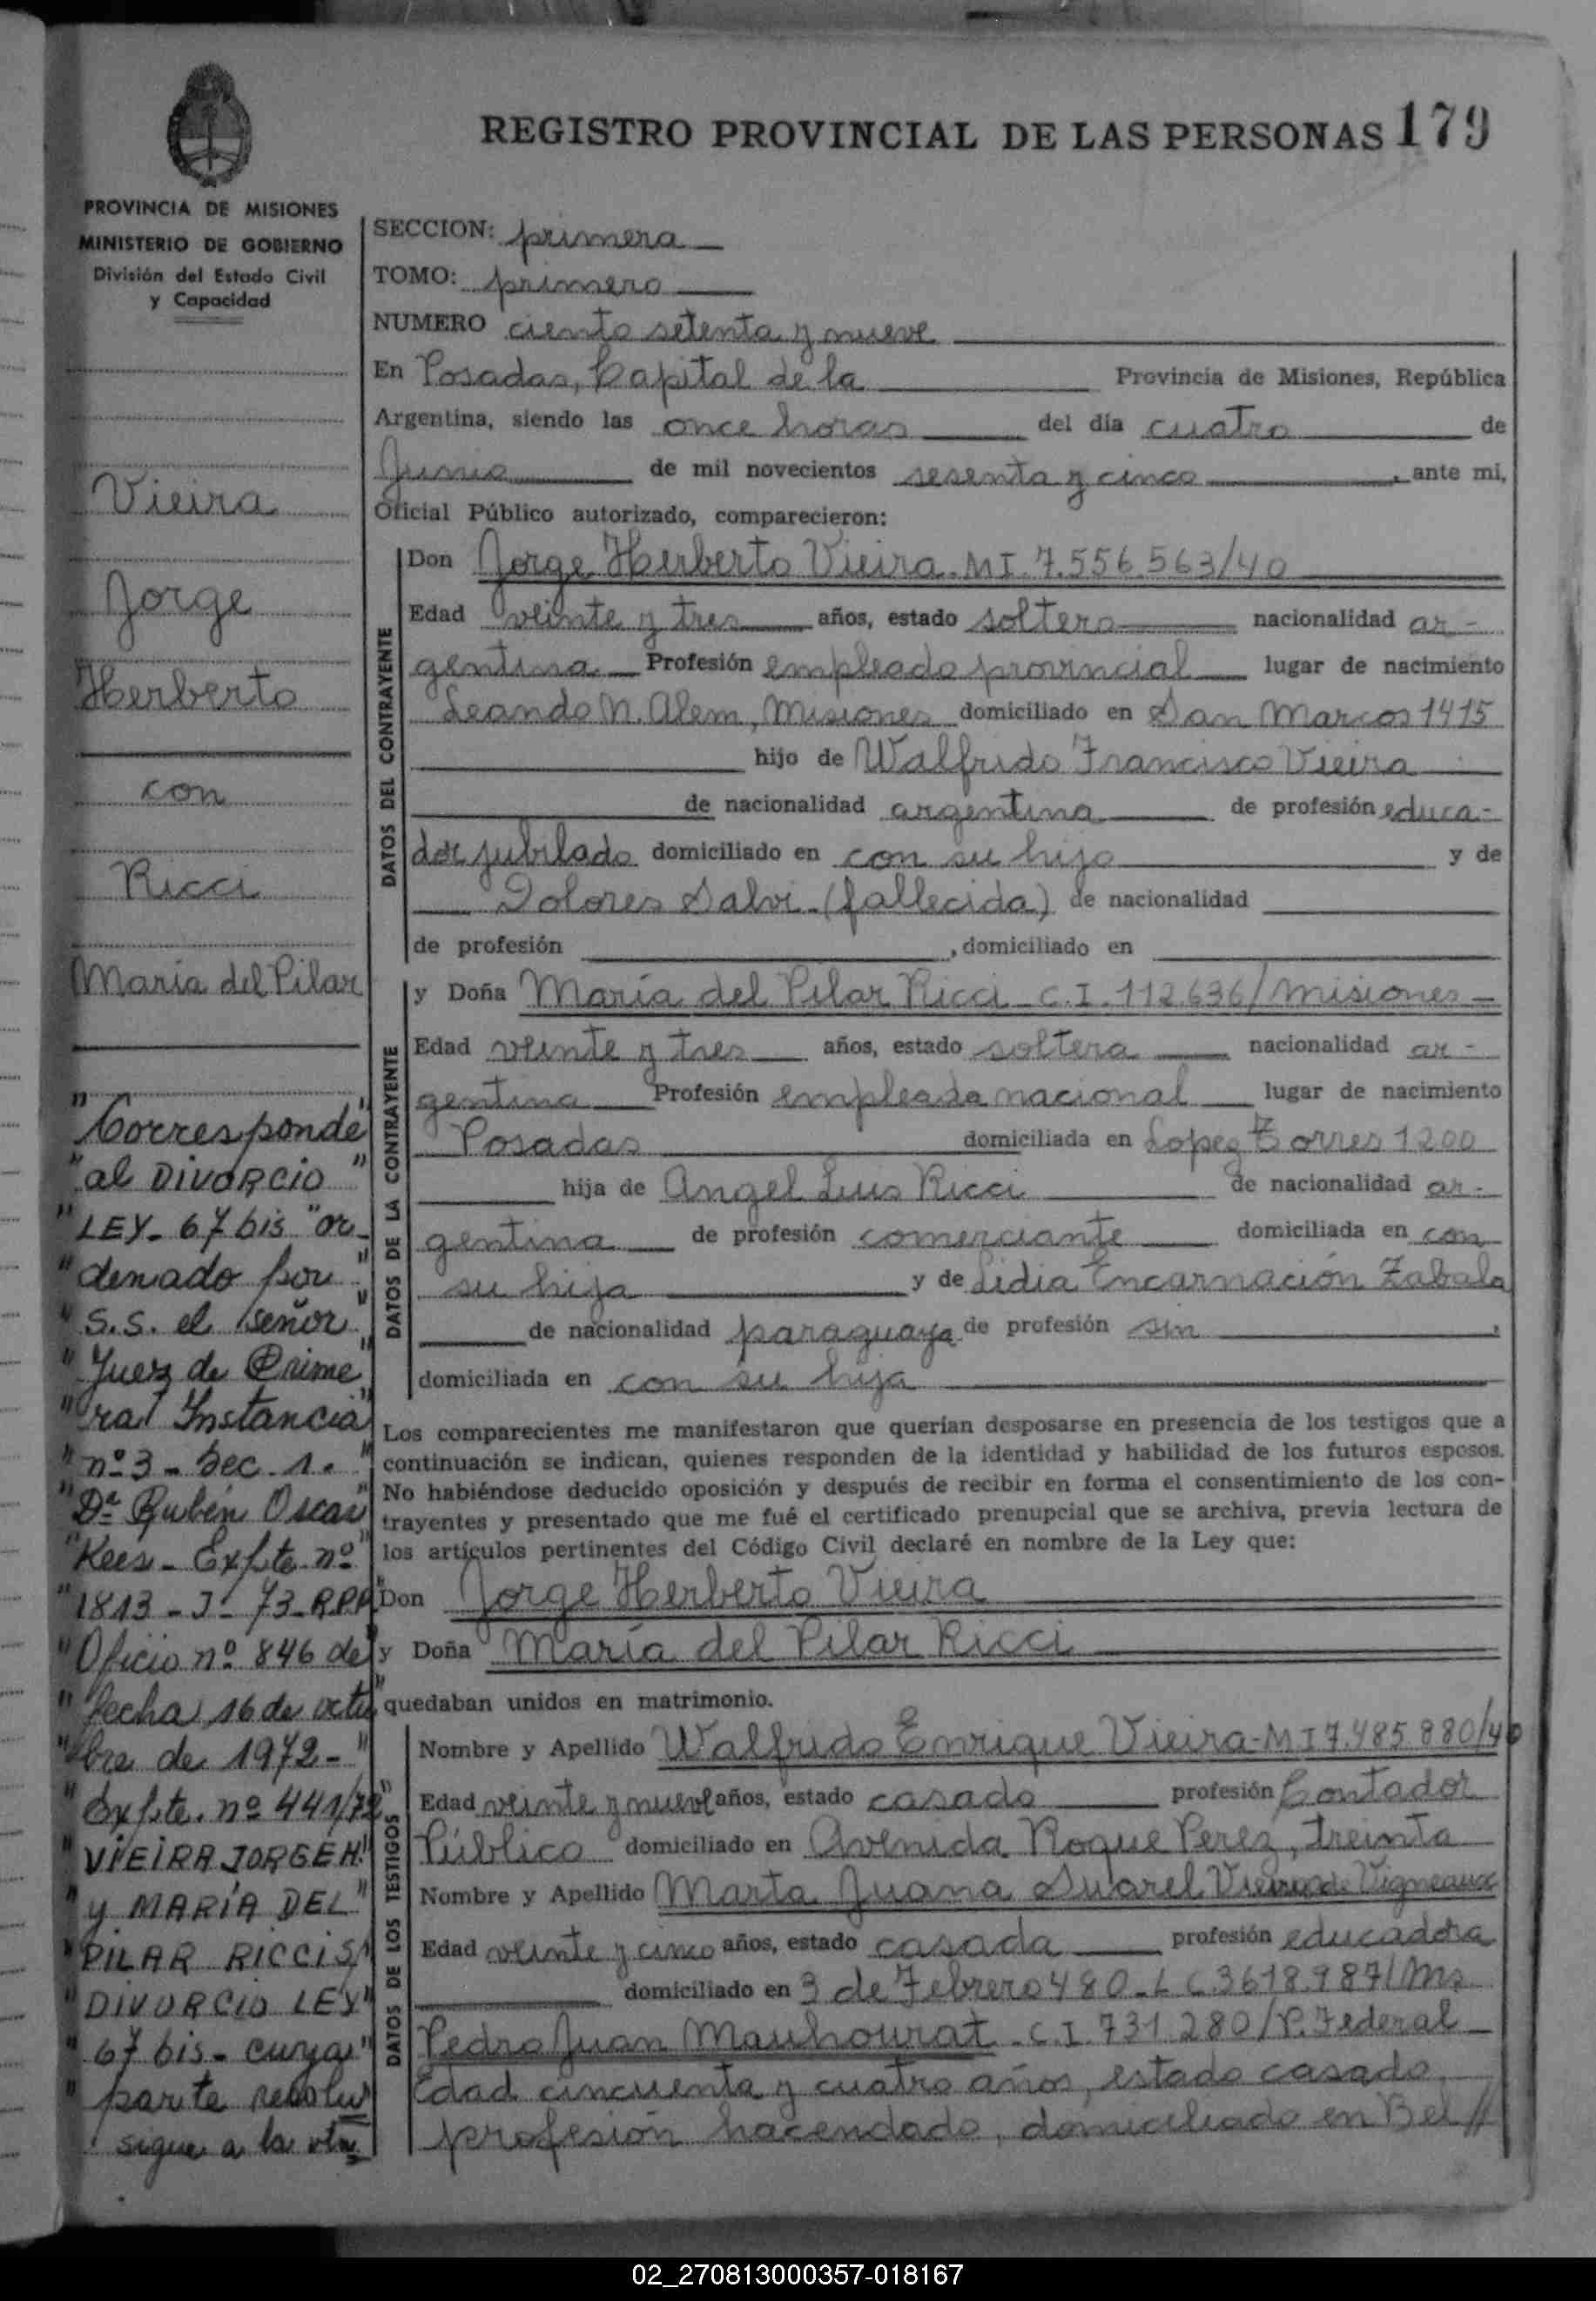 REGISTRO PROVINCIAL DE LAS PERSONAS 179
PROVINCIA DE MISIONES
MINISTERIO DE GOBIERNO
División del Estado Civil
y Capacidad
Vieira
Jorge
Herberto
con
Ricci
María del Pilar
"Corresponde"
"al DIVORCIO"
"LEY- 67 bis "or-
"denado por"
"S.S. el señor"
"Juez de Prime"
"ra Instancia"
"nº 3 - Sec. 1."
"Dr. Rubén Oscar
"Kees - Expte nº"
"1813 - J - 73 - R.P.P."
"Oficio nº 846 de"
"fecha 16 de octu"
"bre de 1972-"
"Expte. nº 441/72"
"VIEIRA JORGE H."
"y MARÍA DEL"
"PILAR RICCI S/"
"DIVORCIO LEY"
"67 bis - cuya"
"parte resolu
sigue a la vta
SECCION: primera
TOMO: primero
NUMERO ciento setenta y nueve
En Posadas, Capital de la Provincia de Misiones, República
Argentina, siendo las once horas del día cuatro de
Junio de mil novecientos sesenta y cinco, ante mi,
Oficial Público autorizado, comparecieron:
DATOS DEL CONTRAYENTE
Don Jorge Herberto Vieira - MI. 7.556.563/40
Edad veinte y tres años, estado soltero nacionalidad ar-
gentina Profesión empleado provincial lugar de nacimiento
Leando N. Alem, Misiones domiciliado en San Marcos 1415
hijo de Walfrido Francisco Vieira
de nacionalidad argentina de profesión educa-
dor jubilado domiciliado en con su hijo y de
Dolores Salvi - (fallecida) de nacionalidad
de profesión , domiciliado en
DATOS DE LA CONTRAYENTE
y Doña María del Pilar Ricci - C.I. 112.636/Misiones -
Edad veinte y tres años, estado soltera nacionalidad ar-
gentina Profesión empleada nacional lugar de nacimiento
Posadas domiciliada en Lopez Torres 1200
hija de Angel Luis Ricci de nacionalidad ar-
gentina de profesión comerciante domiciliada en con
su hija y de Lidia Encarnación Zabala
de nacionalidad paraguaya de profesión sin ,
domiciliada en con su hija
Los comparecientes me manifestaron que querían desposarse en presencia de los testigos que a
continuación se indican, quienes responden de la identidad y habilidad de los futuros esposos.
No habiéndose deducido oposición y después de recibir en forma el consentimiento de los con-
trayentes y presentado que me fué el certificado prenupcial que se archiva, previa lectura de
los artículos pertinentes del Código Civil declaré en nombre de la Ley que:
Don Jorge Herberto Vieira
y Doña María del Pilar Ricci
quedaban unidos en matrimonio.
DATOS DE LOS TESTIGOS
Nombre y Apellido Walfrido Enrique Vieira - MI 7.485.880/40
Edad veinte y nueve años, estado casado profesión Contador
Público domiciliado en Avenida Roque Perez, treinta
Nombre y Apellido Marta Juana Suarel Vieira de Vigneaux
Edad veinte y cinco años, estado casada profesión educadora
domiciliado en 3 de Febrero 480 - L C 3618.987/Ms
Pedro Juan Mauhourat - C.I. 731.280/P. Federal
Edad cincuenta y cuatro años, estado casado,
profesión hacendado, domiciliado en Bel //
02_270813000357-018167